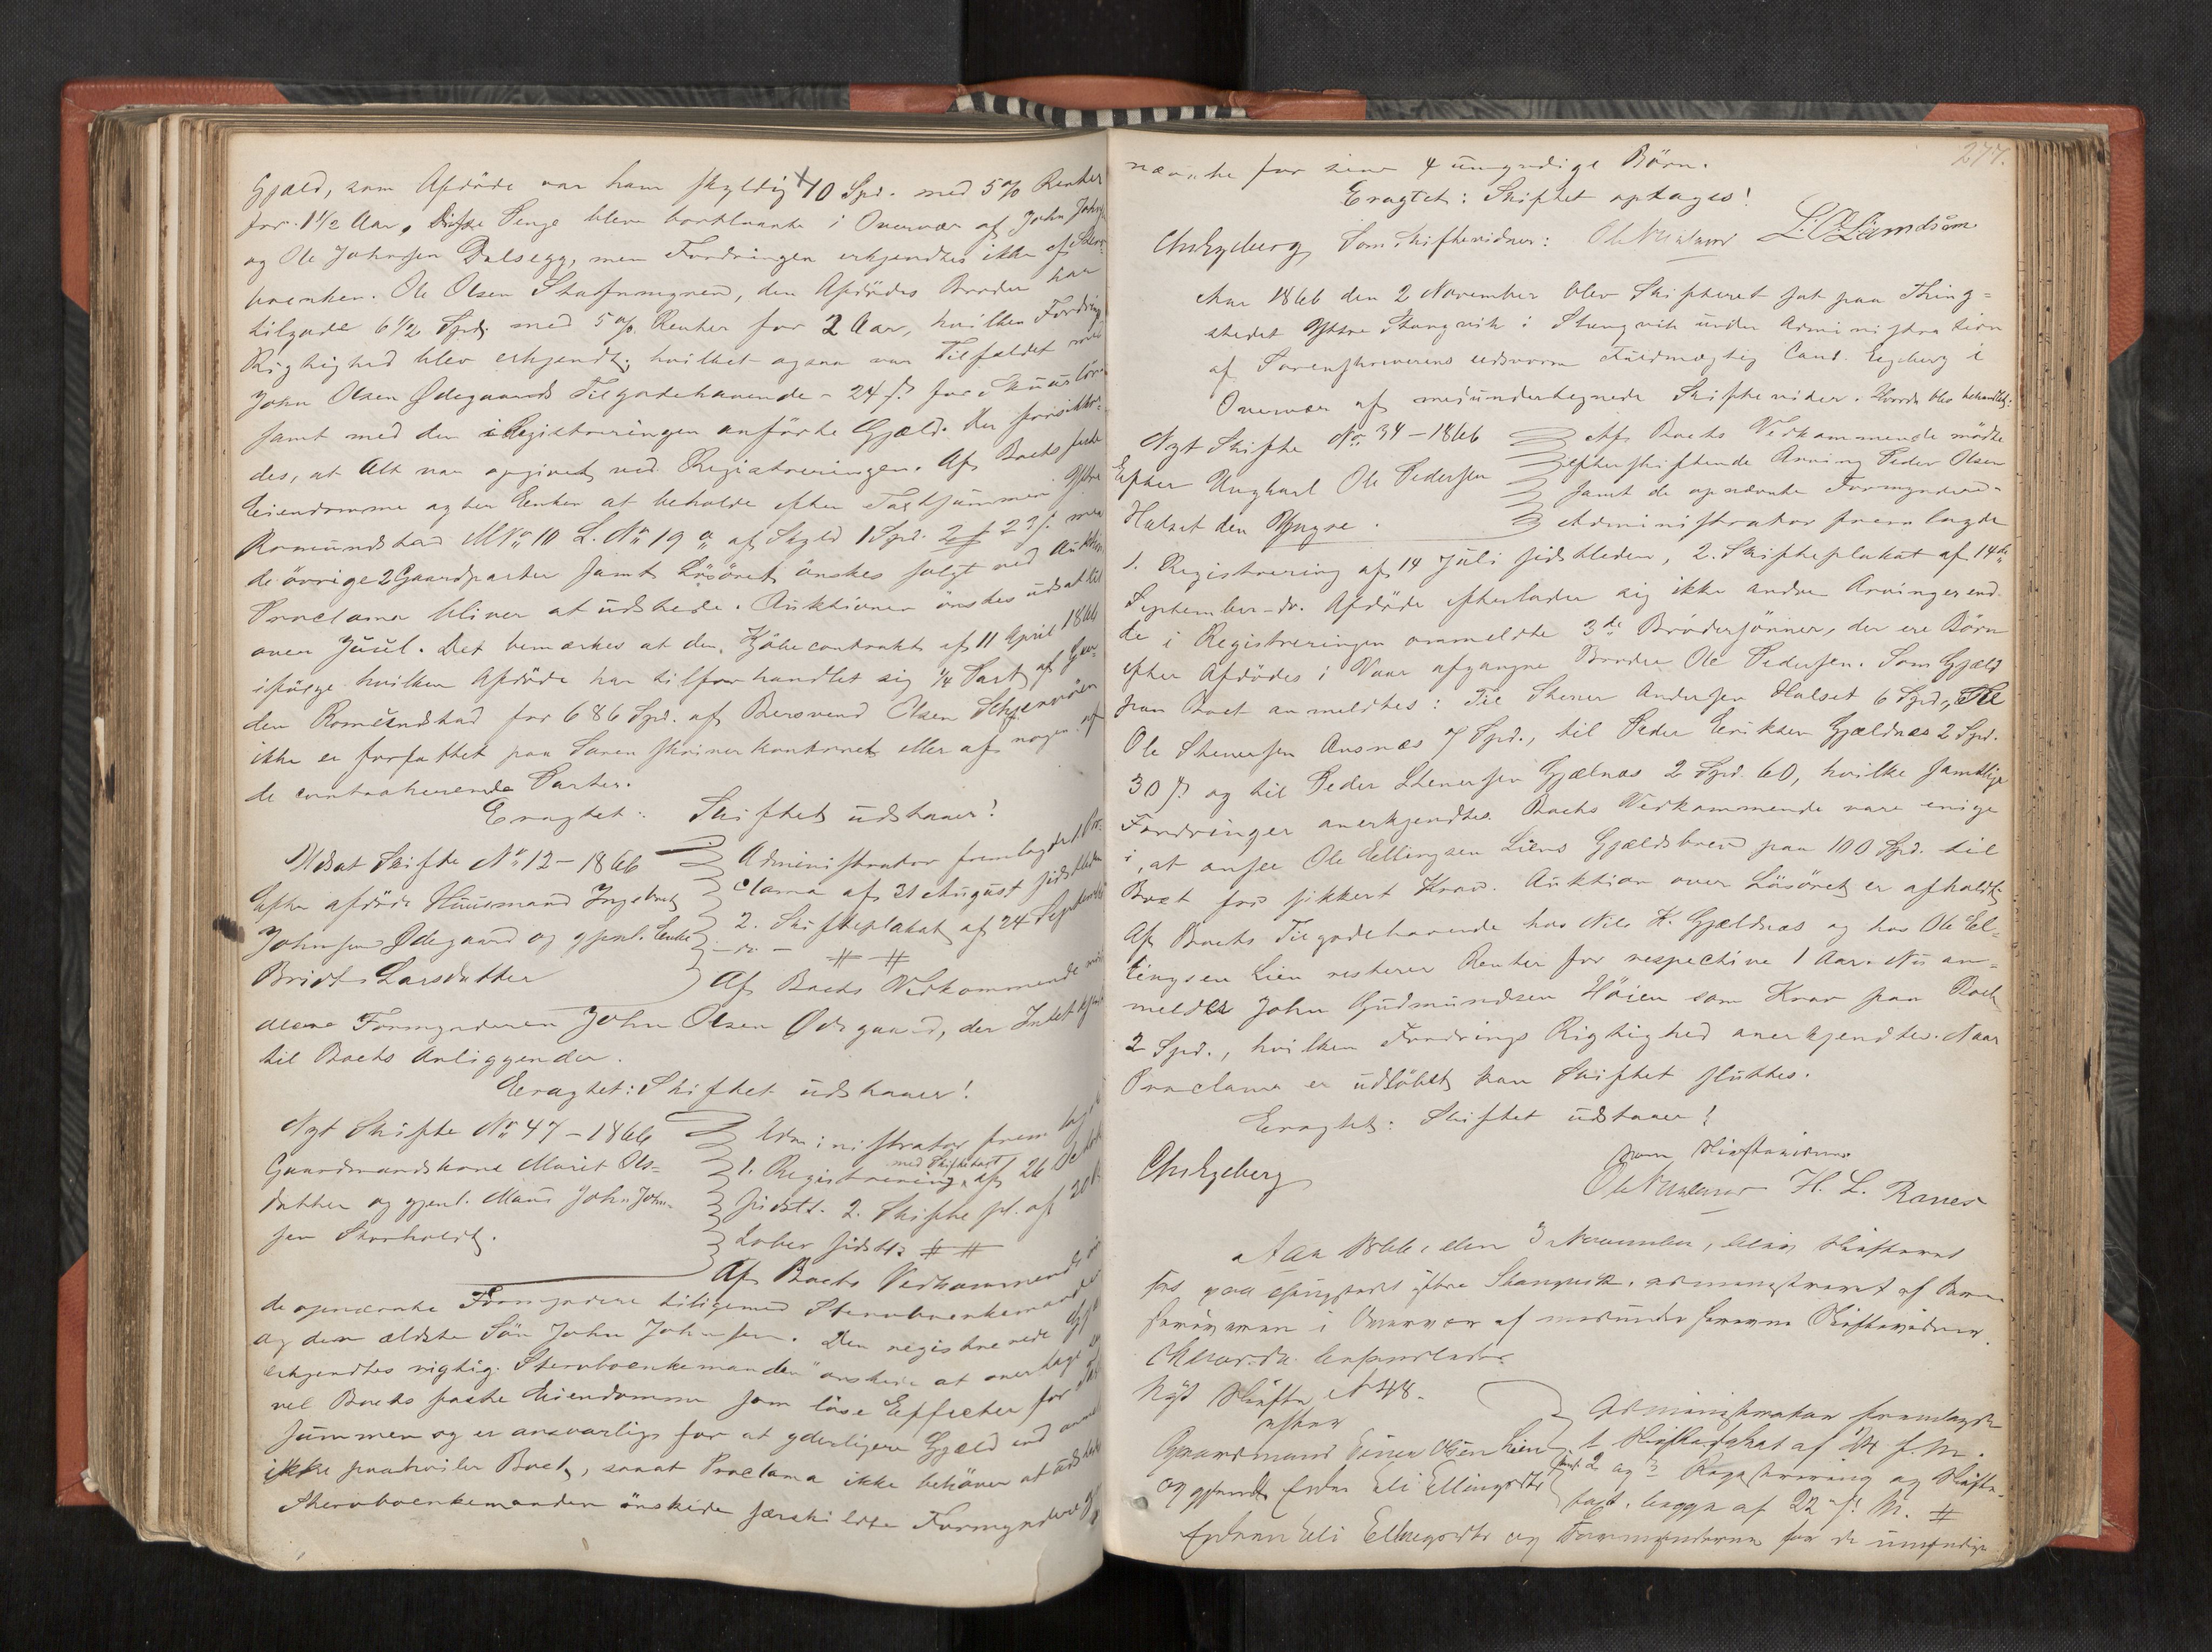 Gjæld, som Afdøde var ham skyldig 10 Spd. med 5 % Renter
for 1 1/2 Aar, disse Penge bleve bortlaante i Overvær af John Johns
og Ole Johnsen Dalsegg, men Fordringen erkjendtes ikke af Sterv-
boenken. Ole Olsen, den Afdødes Broder har
tilgode 6 1/2 Spd. med 5 % Renter for 2 Aar, hvilken Fordrings
Rigtighed blev erkjendt; hvilket ogsaa var Tilfældet med
John Olsen Ødegaards Tilgodehavende - 24 ß for
samt med den i Registreringen anførte Gjæld. Der forsikkre-
des, at Alt var opgivet ved Registreringen. Af Boets faste
Eiendomme agter Enken at beholde efter Taxtsummen Ydre
Romundstad M No 10 L. No 19 a af Skyld 1 Spd. 2 # 23 ß. men
de øvrige 2 Gaardparter samt Løsøret ønskes solgt ved Auktion
Proclama bliver at udstede. Auktionen ønskes udsat til
over Juul. Det bemærkes at den Kjøbecontrakt af 11 April 1866
ifølge hvilken Afdøde har tilforhandlet sig 1/4 Part af Gaar-
den Romundstad for 686 Spd. af Bersvend Olsen
ikke er forfattet paa Sorenskriverkontoret eller af nogen af
de contraherende Parter.
Eragtet: Skiftet udstaaer!
Udsat Skifte No 12 - 1866
Efter afdøde Huusmand Ingebret
Johnsen Ødegaard og gjenl. Enke
Bridt Larsdatter
Administrator fremlagde 1. Pro-
clama af 31 August sidstleden
2. Skifteplakat af 24 September
- d. - # #
Af Boets Vedkommende mødte
alene Formynderen John Olsen Ødegaard, der Intet
til Boets Anliggender.
Eragtet: Skiftet udstaaer!
Nyt Skifte No 47 - 1866
Gaardmandskone Marit Ols-
datter og gjenl. Mand John John-
sen Storholdt.
Administrator fremlagde
1. Registrering med Skiftetaxt af 26 October
sidstl. 2. Skiftepl. af 20 Oc-
tober sidstl. # #
Af Boets Vedkommende
de opnævnte Formyndere tilligemed Stervboenkemanden
og den ældste Søn John Johnsen. Den registrerede Gjæld
erkjendtes rigtig. Stervboenkemanden ønskede at overtage saa-
vel Boets faste Eiendomme som løse Effecter for Taxt-
summen og er ansvarlig for at yderligere Gjæld end anmeldt
ikke paahviler Boet, saaat Proclama ikke behøver at udstedes
Stervboenkemanden ønskede særskildte Formyndere
277.
nævnte for sine 4 umyndige Børn.
Eragtet: Skiftet optages!
Chr Egeberg Som Skiftevidner: L. O. Landsem
Aar 1866 den 2 November blev Skifteret sat paa Thing-
stedet Yttre Stangvik i Stangvik under Administration
af Sorenskriverens edsvorne Fuldmægtig Cand. Egeberg i
Overvær af medundertegnede Skiftevidner. Hvorda blev behandlet:
Nyt Skifte No 34 - 1866
Efter Ungkarl Ole Pedersen
Halset den Yngre.
Af Boets Vedkommende mødte
efterskiftende Arving Peder Olsen
samt de opnævnte Formyndere.
Administrator fremlagde
1. Registrering af 14 Juli sidstleden, 2. Skifteplakat af 14de
September - d. Afdøde efterlader sig ikke andre Arvinger end
de i Registreringen ommeldte 3de Brødersønner, der ere Børn
efter Afdødes i Vaar afgangne Broder Ole Pedersen. Som Gjæld
paa Boet anmeldtes: Til Stener Andersen Halset 6 Spd., Til
Ole Stenersen Aasnæs 7 Spd., til Peder Eriksen Gjældnæs 2 Spd.
30 ß og til Peder Stenersen Gjælnæs 2 Spd. 60, hvilke samtlige
Fordringer anerkjendtes. Boets Vedkommende vare enige
i, at ansee Ole Ellingsen Liens Gjældsbrev paa 100 Spd. til
Boet for sikkert Krav. Auktion over Løsøret er afholdt.
Af Boets Tilgodehavende hos Nils K. Gjældnæs og hos Ole El-
lingsen Lien resterer Renter for respective 1 Aar. Nu an-
meldes John Gudmundsen Høien som Krav paa Boet
2 Spd., hvilken Fordrings Rigtighed anerkjendtes. Naar
Proclama er udløbet kan Skiftet sluttes.
Eragtet: Skiftet udstaaer!
som Skiftevidner
Chr Egeberg
H. L. Ranes
Aar 1866, den 3 November, blev Skifteret
sat paa Thingstedet ytre Stangvik, administreret af Soren-
skriveren i Overvær af medunderskrevne Skiftevidner.
Hvorda behandledes
Nyt Skifte No 48.
efter
Gaardmand Einer Olsen Lien
og gjenl. Enke Eli Ellingsdtr
Administrator fremlagde
1 Skifteplakat af f. M.
samt 2 og 3 Registrering og Skifte-
taxt, begge af 22 f. M. #
Enken Eli Ellingsdtr og Formynderne for de umyndige